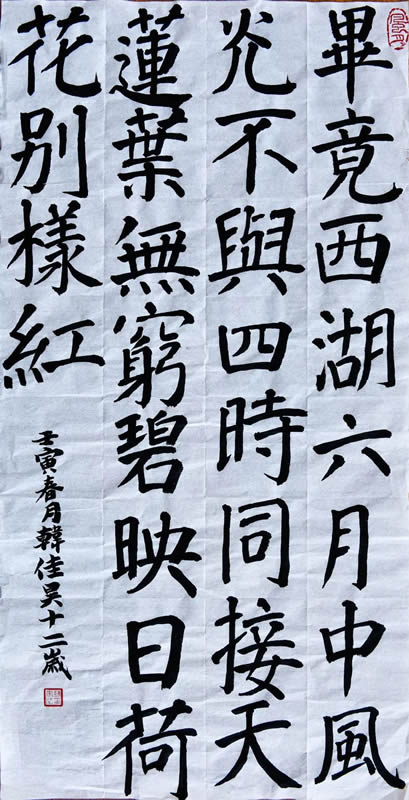 畢竟西湖六月中風
光不與四時同接天
蓮葉無窮碧映日荷
花别樣紅
壬寅春月韓佳昊十二歲